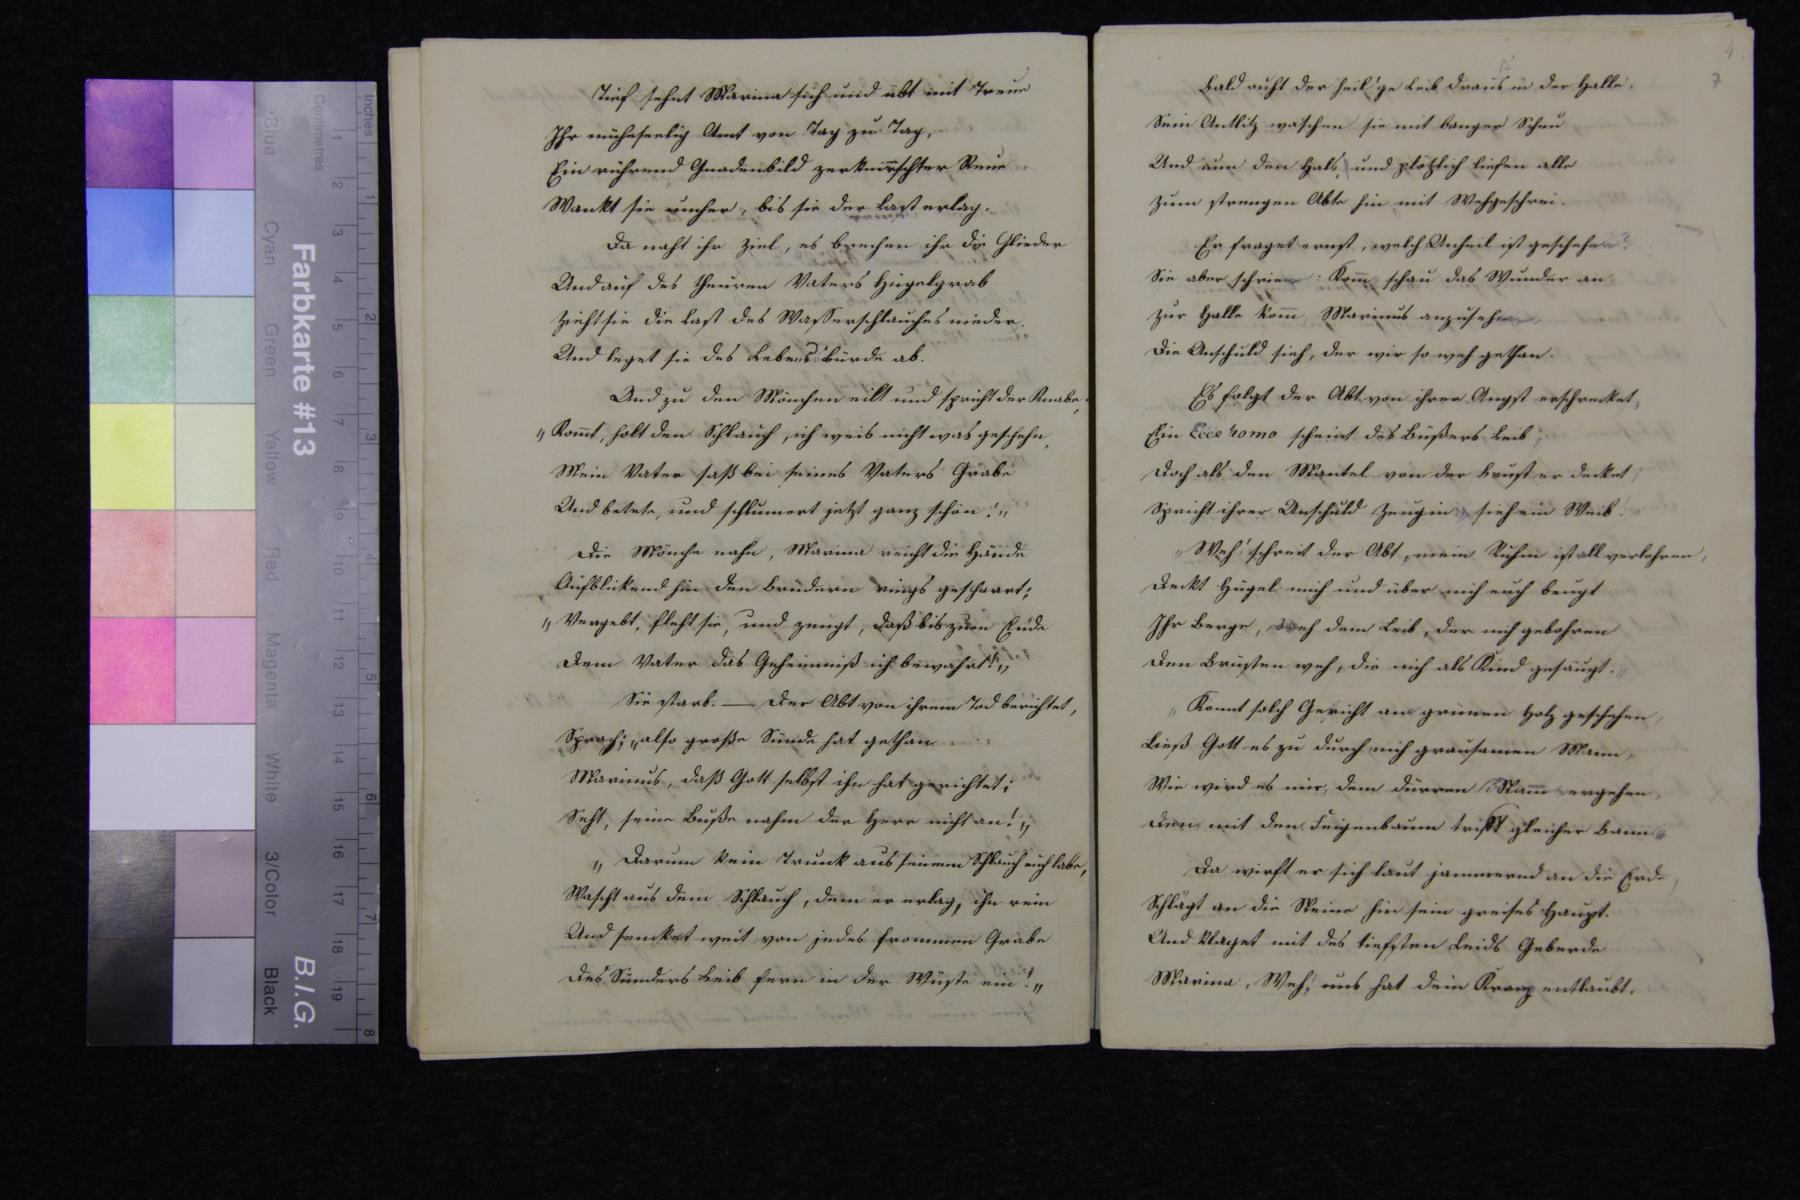 Tief sehnt Marina sich und übt mit Treue
Ihr mühseelig Amt von Tag zu Tag,
Ein rührend Gnadenbild zerknirschter Reue
Wankt sie umher, bis sie der Last erlag.
Da naht ihr Ziel, es brechen ihr die Glieder
Und auf des theuren Vaters Hügelgrab
Zieht sie die Last des Wasserschlauches nieder.
Und leget sie des Lebens Bürde ab.
Und zu den Mönchen eilt und spricht der Knabe,
„Kom̄t, holt den Schlauch, ich weis nicht was geschehn,
Mein Vater saß bei seines Vaters Grabe
Und betete, und schlumert jetzt ganz schön!„
Die Mönche nahn, Marina reicht die Hände
Aufblickend hin den Brüdern rings geschaart;
„Vergebt, fleht sie, und zeugt, daß bis zum Ende
Dem Vater das Geheimniß ich bewahrt!„
Sie starb. — Der Abt von ihrem Tod berichtet,
Sprach; „also große Sünde hat gethan
Marinus, daß Gott selbst ihn hat gerichtet;
Seht, seine Buße nahm der Herr nicht an!„
„Darum kein Trunk aus seinem Schlauch euch labe,
Wascht aus dem Schlauch, dem er erlag, ihn rein
Und senket weit von jedes frommen Grabe
Des Sünders Leib fern in der Wüste ein!„
4
7
Bald ruht der heil'ge Leib draus in der Halle.
Sein Antlitz waschen sie mit banger Scheu
Und nun den Hals, und plötzlich liefen alle
Zum strengen Abte hin mit Wehgeschrei.
Er fraget ernst, welch Unheil ist geschehen?
Sie aber schrien: Kom̄ schau das Wunder an
Zur Halle kom̄ Marinus anzusehen
Die Unschuld sieh, der wir so weh gethan.
Es folgt der Abt von ihrer Angst erschrecket,
Ein Ecce homo scheint des Büßers Leib;
Doch als den Mantel von der Brust er decket
Spricht ihrer Unschuld Zeugin, sieh ein Weib.
„Weh! schreit der Abt, mein Ruhm ist all verlohren,
Deckt Hügel mich und über mich euch beugt
Ihr Berge, weh dem Leib, der mich gebohren
Den Brüsten weh, die mich als Kind gesäugt.„
„Konnt solch Gericht am grünen Holz geschehen,
Ließ Gott es zu durch mich grausamen Mann,
Wie wird es mir, dem dürren Stam̄ ergehen,
Den mit dem Feigenbaum trifft gleicher Bann
Da wirft er sich laut jammernd an die Erde,
Schlägt an die Steine hin sein greises Haupt.
Und klaget mit des tiefsten Leids Geberde
Marina, Weh! uns hat dein Kranz entlaubt.
Farbkarte #13
B.I.G.
Inches
Centimetres
Blue
Cyan
Green
Yellow
Red
Magenta
White
3/Color
Black
1 2 3 4 5 6 7 8 9 10 11 12 13 14 15 16 17 18 19
1 2 3 4 5 6 7 8